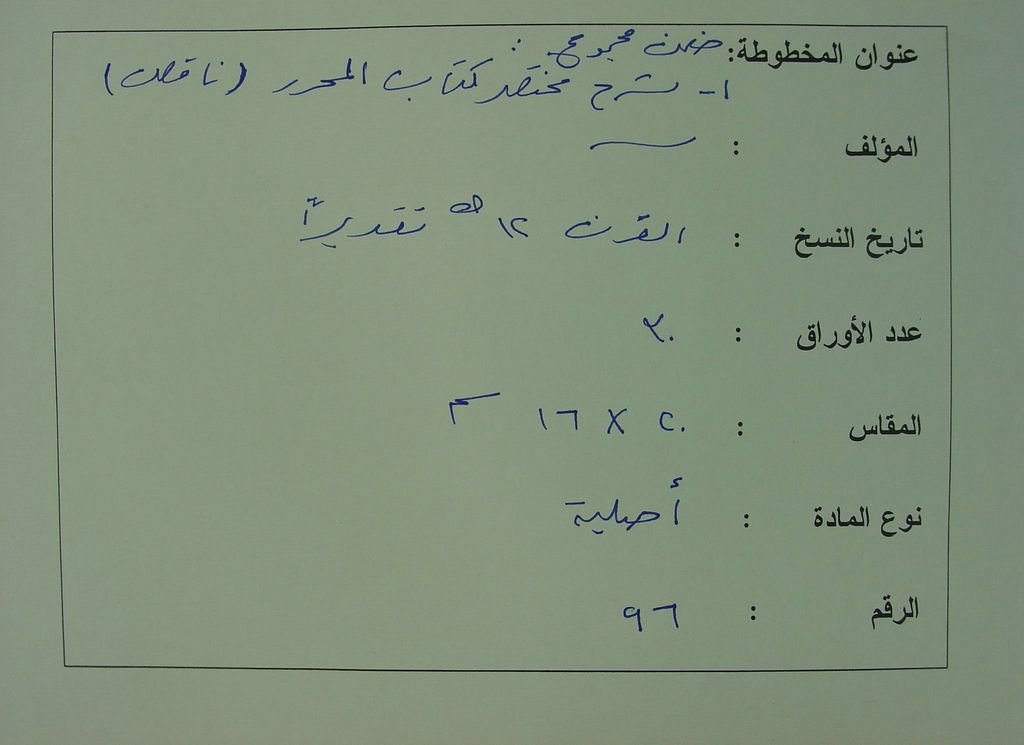 عنوان المخطوطة: ضمن مجموع:
١- شرح مختصر كتاب المحرر (ناقص)
المؤلف : ــ
تاريخ النسخ : القرن ١٢ هـ تقديراً
عدد الأوراق : ٣٠
المقاس : ٢٠ X ١٦ سم
نوع المادة : أصلية
الرقم : ٩٦